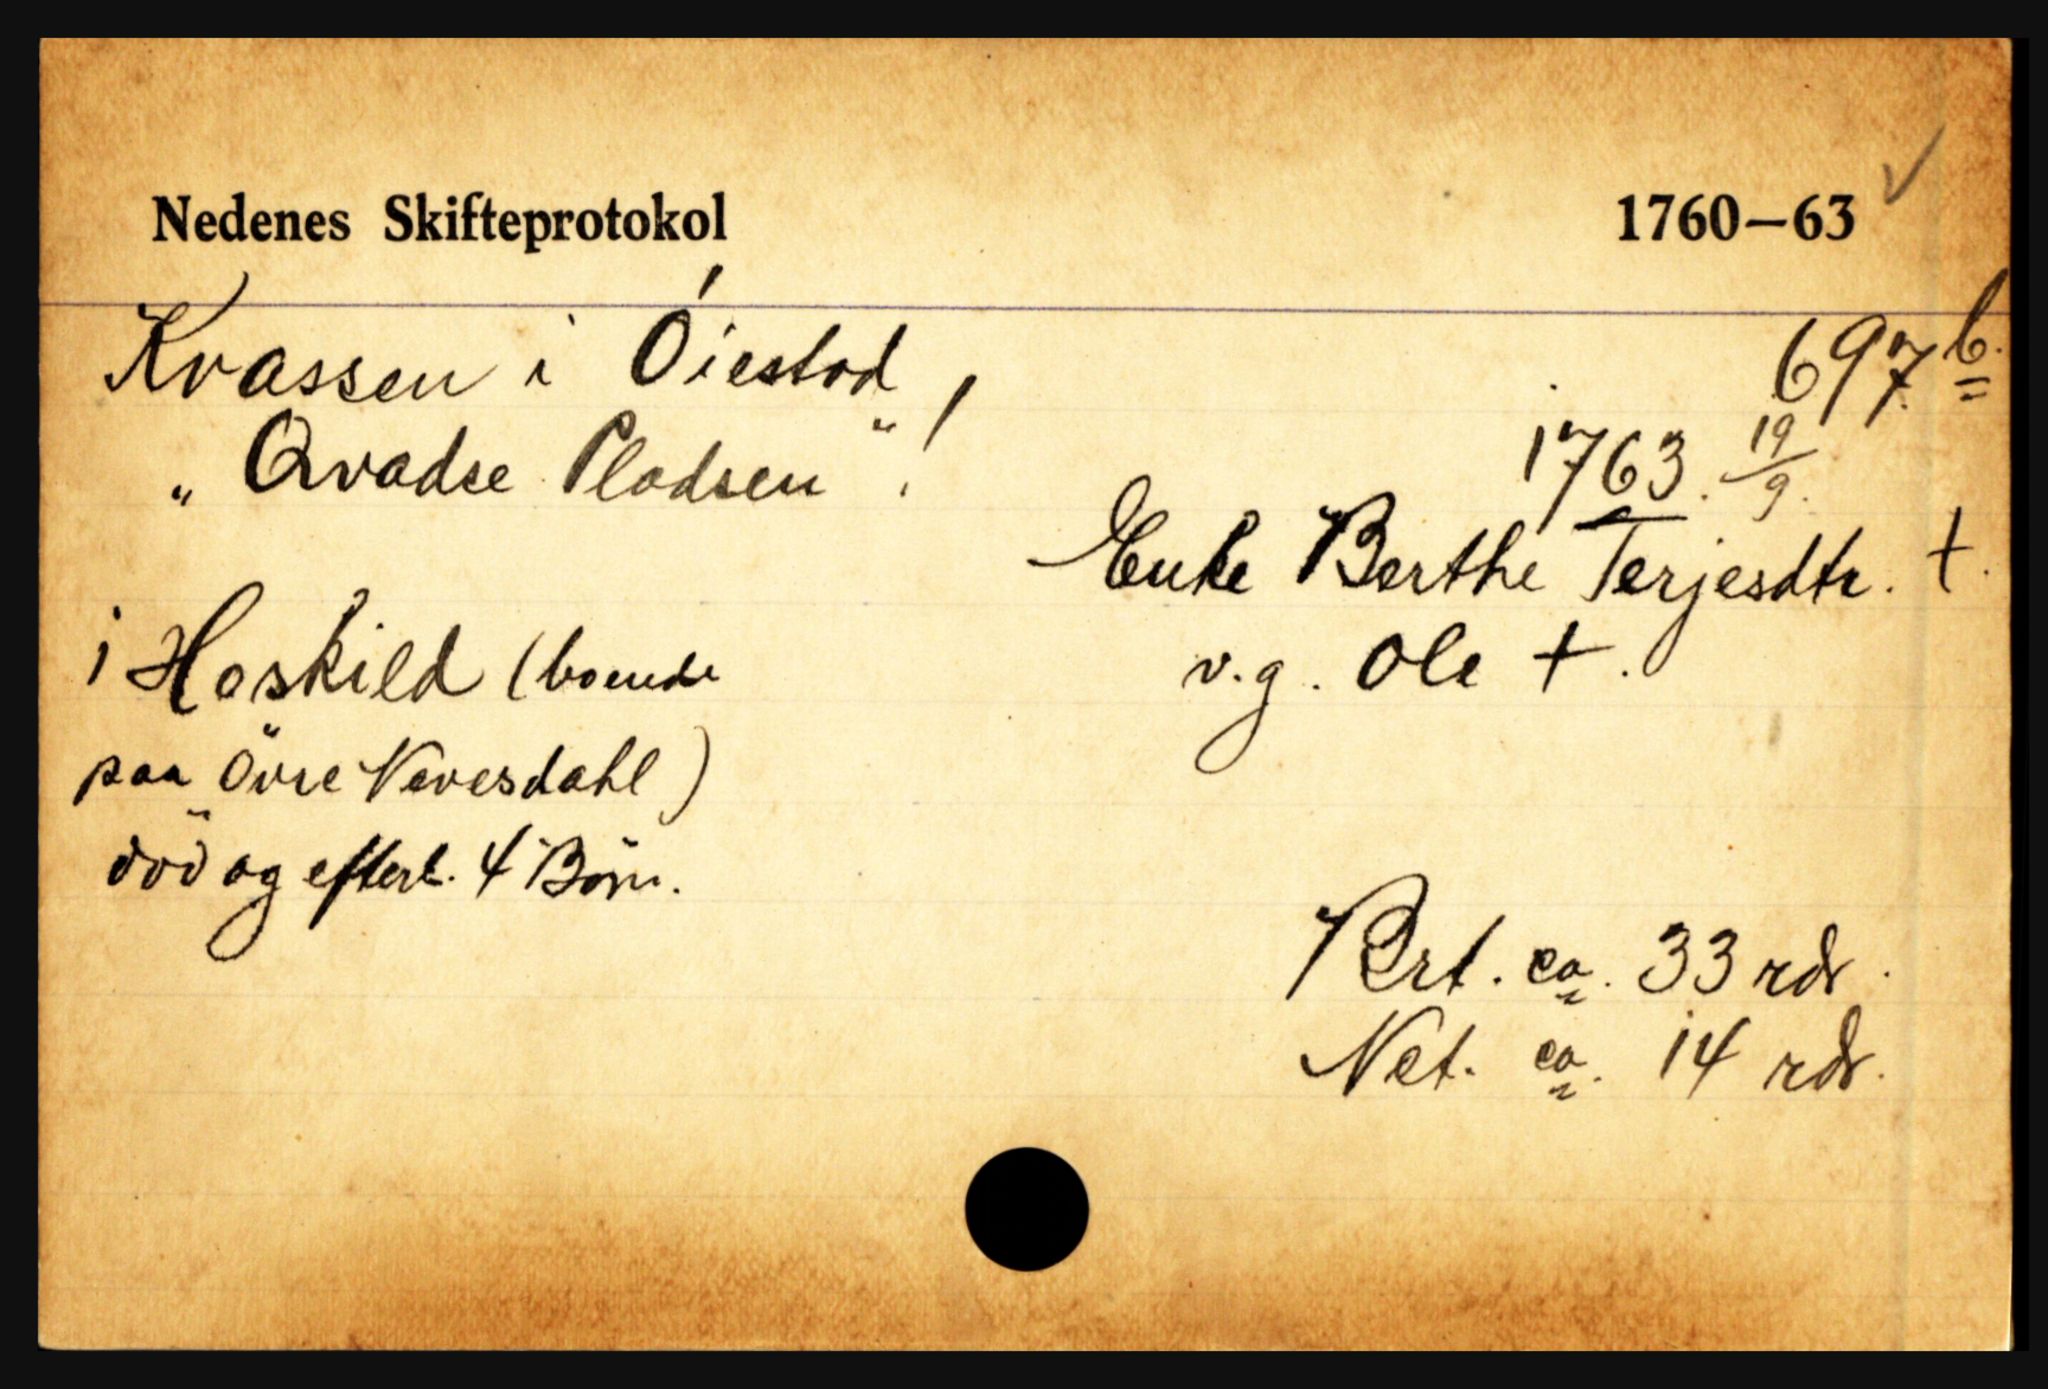 Nedenes Skifteprotokol 1760—63
Kvassen i Öiestad, 697 b.
„Qvadse Pladsen"! 1763. 19/9.
Enke Berthe Terjesdtr. †.
v.g. Ole †.
1 Haskild (boende
paa Övre Nevesdahl)
död og efterl. 4 Börn.
Brt. ca. 33 rdr.
Net. ca. 14 rdr.